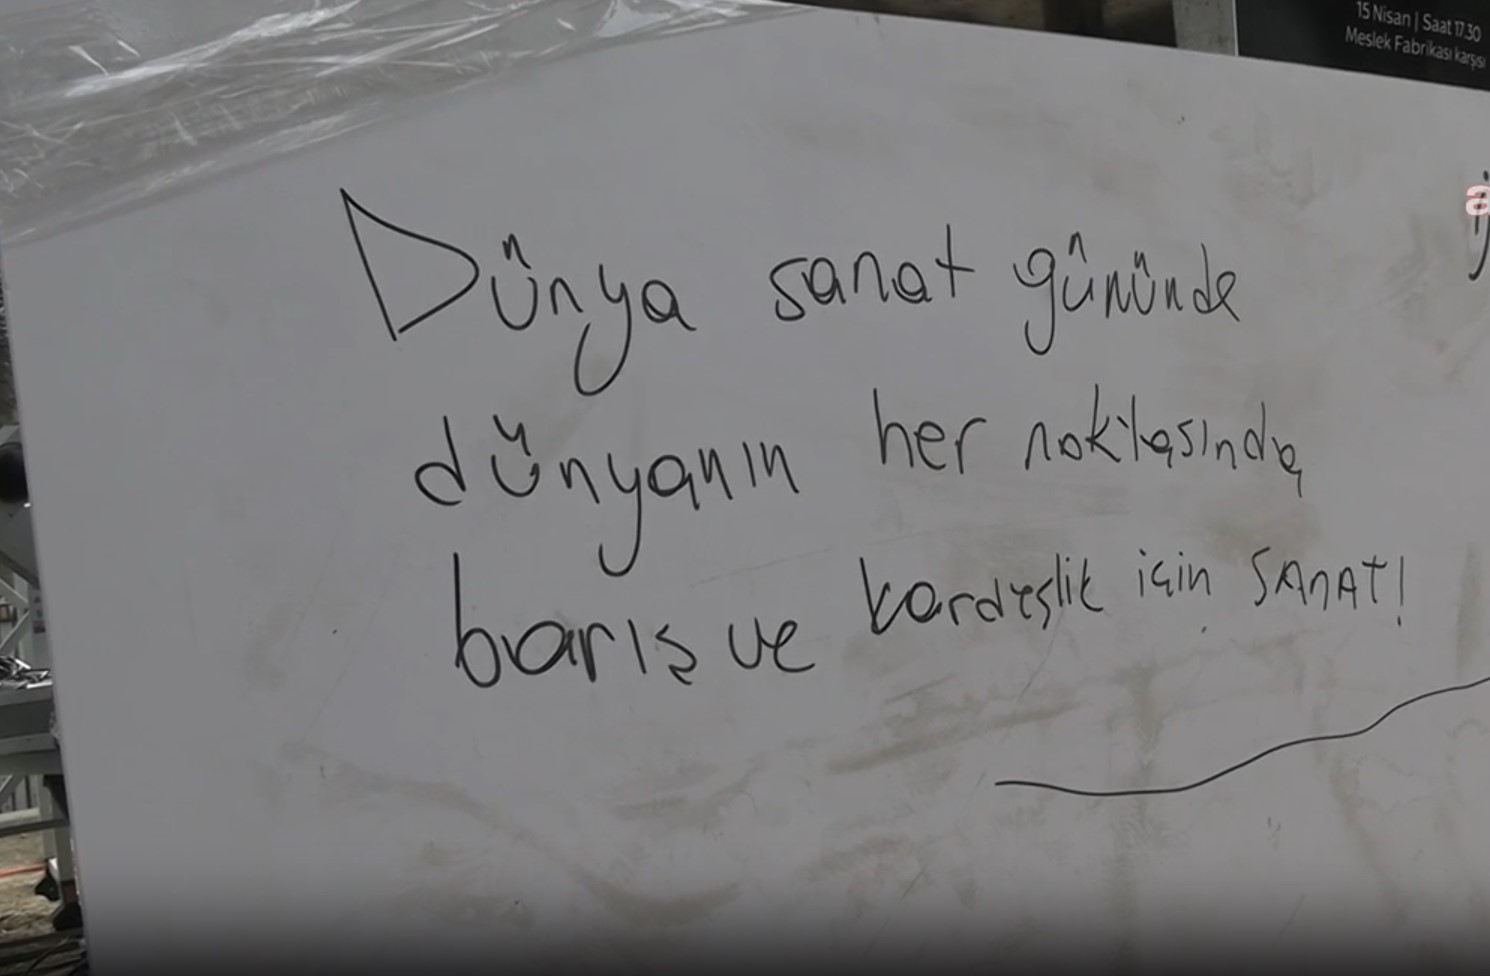 15 Nisan | Saat 17.30
Meslek Fabrikası karşısı
Dünya sanat gününde
dünyanın her noktasında
barış ve kardeşlik için SANAT!
a